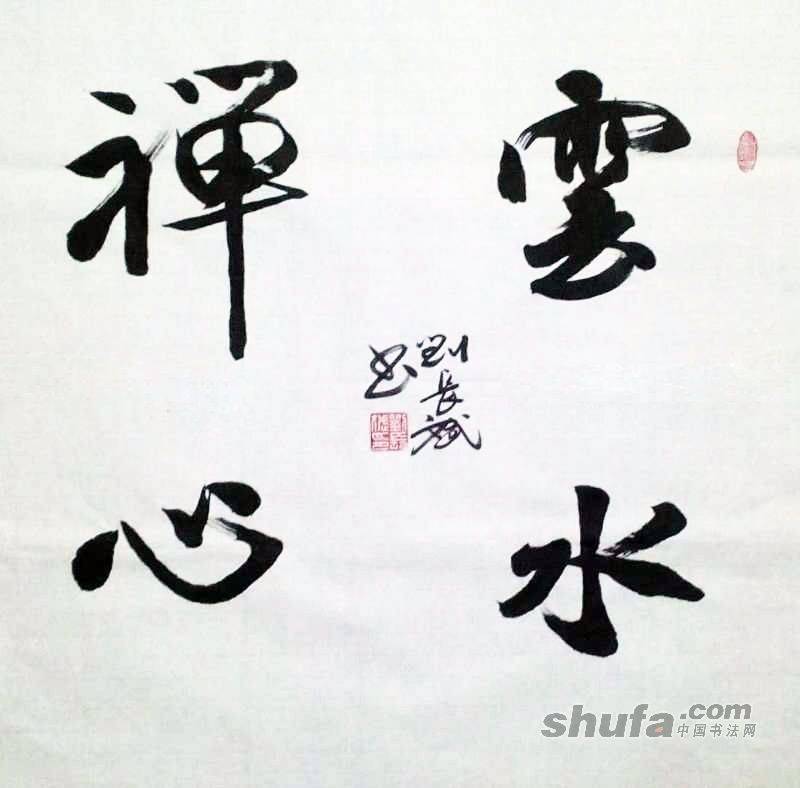 雲水
禅心
劉長斌
书
shufa.com
中国书法网